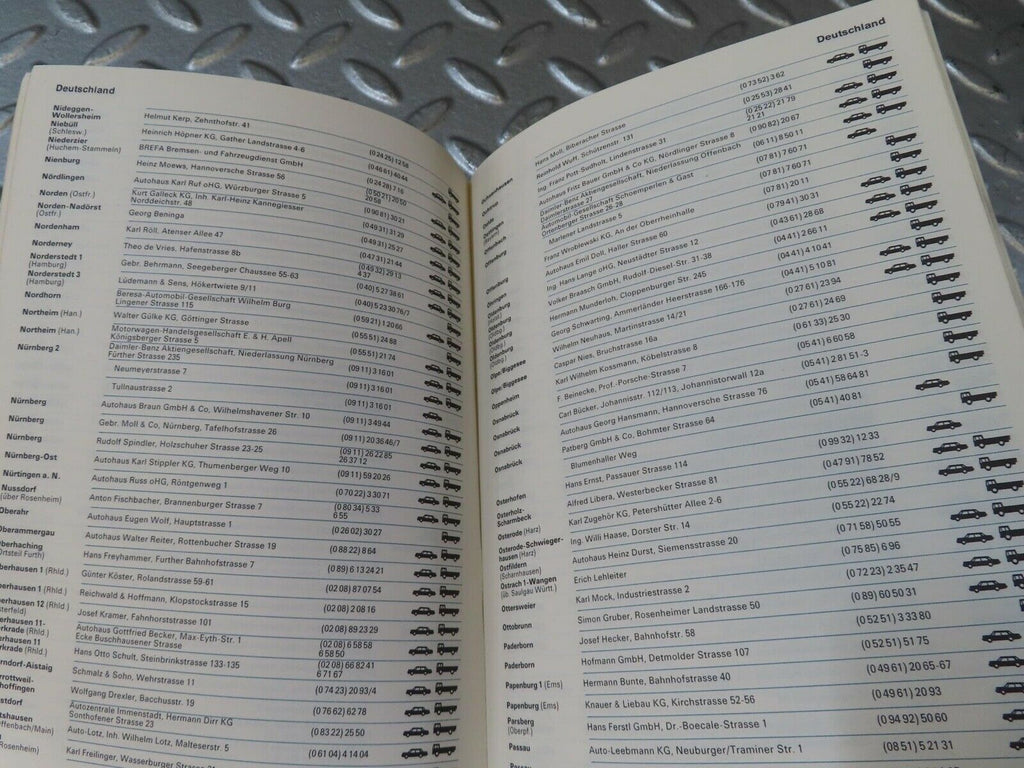 Deutschland
Nideggen-
Wollersheim Helmut Kerp, Zehnthofstr. 41 (0 24 25) 12 58
Niebüll
(Schlesw.) Heinrich Höpner KG, Gather Landstrasse 4-6 (0 46 61) 40 44
Niederzier
(Huchem-Stammeln) BREFA Bremsen- und Fahrzeugdienst GmbH (0 24 28) 7 16
Nienburg Heinz Moews, Hannoversche Strasse 56 (0 50 21) 20 50
20 58
Nördlingen Autohaus Karl Ruf oHG, Würzburger Strasse 5 (0 90 81) 30 21
Norden (Ostfr.) Kurt Galleck KG, Inh. Karl-Heinz Kannegiesser
Norddeichstr. 48 (0 49 31) 31 29
Norden-Nadörst
(Ostfr.) Georg Beninga (0 49 31) 25 27
Nordenham Karl Röll, Atenser Allee 47 (0 47 31) 21 44
Norderney Theo de Vries, Hafenstrasse 8b (0 49 32) 29 13
4 37
Norderstedt 1
(Hamburg) Gebr. Behrmann, Seegeberger Chaussee 55-63 (0 40) 5 27 38 61
Norderstedt 3
(Hamburg) Lüdemann & Sens, Hökertwiete 9/11 (0 40) 5 23 30 76/7
Nordhorn Beresa-Automobil-Gesellschaft Wilhelm Burg
Lingener Strasse 115 (0 59 21) 1 20 66
Northeim (Han.) Walter Gülke KG, Göttinger Strasse (0 55 51) 24 68
Northeim (Han.) Motorwagen-Handelsgesellschaft E. & H. Apell
Königsberger Strasse 5 (0 55 51) 21 74
Nürnberg 2 Daimler-Benz Aktiengesellschaft, Niederlassung Nürnberg
Fürther Strasse 235 (09 11) 3 16 01
Neumeyerstrasse 7 (09 11) 3 16 01
Tullnaustrasse 2 (09 11) 3 16 01
Nürnberg Autohaus Braun GmbH & Co, Wilhelmshavener Str. 10 (09 11) 3 49 44
Nürnberg Gebr. Moll & Co, Nürnberg, Tafelhofstrasse 26 (09 11) 20 36 46/7
Nürnberg Rudolf Spindler, Holzschuher Strasse 23-25 (09 11) 26 22 85
26 37 12
Nürnberg-Ost Autohaus Karl Stippler KG, Thumenberger Weg 10 (09 11) 59 20 26
Nürtingen a. N. Autohaus Russ oHG, Röntgenweg 1 (0 70 22) 3 30 71
Nussdorf
(über Rosenheim) Anton Fischbacher, Brannenburger Strasse 7 (0 80 34) 5 33
6 55
Oberahr Autohaus Eugen Wolf, Hauptstrasse 1 (0 26 02) 30 27
Oberammergau Autohaus Walter Reiter, Rottenbucher Strasse 19 (0 88 22) 8 64
berhaching
Ortsteil Furth) Hans Freyhammer, Further Bahnhofstrasse 7 (0 89) 6 13 24 21
berhausen 1 (Rhld.) Günter Köster, Rolandstrasse 59-61 (02 08) 87 07 54
berhausen 1 (Rhld.) Reichwald & Hoffmann, Klopstockstrasse 15 (02 08) 2 08 16
berhausen 12 (Rhld.)
sterfeld) Josef Kramer, Fahnhorststrasse 101 (02 08) 89 23 29
erhausen 11-
rkrade (Rhld.) Autohaus Gottfried Becker, Max-Eyth-Str. 1
Ecke Buschhausener Strasse (02 08) 6 58 58
6 58 50
erhausen 11
rkrade (Rhld.) Hans Otto Schult, Steinbrinkstrasse 133-135 (02 08) 66 82 41
6 71 67
erndorf-Aistaig Schmalz & Sohn, Wehrstrasse 11 (0 74 23) 20 93/4
rrottweil-
hoffingen Wolfgang Drexler, Bacchusstr. 19 (0 76 62) 62 78
stdorf Autozentrale Immenstadt, Hermann Dirr KG
Sonthofener Strasse 23 (0 83 22) 25 50
tshausen
ffenbach/Main) Auto-Lotz, Inh. Wilhelm Lotz, Malteserstr. 5 (0 61 04) 4 14 04
Rosenheim) Karl Freilinger, Wasserburger Strasse 21
Deutschland
Ochsenhausen Hans Moll, Biberacher Strasse (0 73 52) 3 62
Ochtrup Reinhold Wulf, Schützenstr. 131 (0 25 53) 28 41
Oelde Ing. Franz Pott Sudholt, Lindenstrasse 31 (0 25 22) 21 79
21 21
Oettingen Autohaus Fritz Bauer GmbH & Co KG, Nördlinger Strasse 8 (0 90 82) 20 67
Offenbach Daimler-Benz Aktiengesellschaft, Niederlassung Offenbach
Daimlerstrasse 27 (06 11) 8 50 11
Offenburg Automobil Gesellschaft Schoemperlen & Gast
Ortenberger Strasse 26-28 (07 81) 7 60 71
Marlener Landstrasse 5 (07 81) 7 60 71
Offenburg Franz Wroblewski KG, An der Oberrheinhalle (07 81) 20 11
Öhringen Autohaus Emil Doll, Haller Strasse 60 (0 79 41) 30 31
Oldenburg
(Holst.) Ing. Hans Lange oHG, Neustädter Strasse 12 (0 43 61) 28 68
Oldenburg
(Oldbg.) Volker Braasch GmbH, Rudolf-Diesel-Str. 31-38 (04 41) 2 66 11
Oldenburg
(Oldbg.) Hermann Munderloh, Cloppenburger Str. 245 (04 41) 4 10 41
Oldenburg
(Oldbg.) Georg Schwarting, Ammerländer Heerstrasse 166-176 (04 41) 5 10 81
Olpe/Biggesee Wilhelm Neuhaus, Martinstrasse 14/21 (0 27 61) 23 94
Olpe/Biggesee Caspar Nies, Bruchstrasse 16a (0 27 61) 24 69
Oppenheim Karl Wilhelm Kossmann, Köbelstrasse 8 (0 61 33) 25 30
Osnabrück F. Beinecke, Prof.-Porsche-Strasse 7 (05 41) 6 60 58
Osnabrück Carl Bücker, Johannisstr. 112/113, Johannistorwall 12a (05 41) 2 81 51-3
Osnabrück Autohaus Georg Hansmann, Hannoversche Strasse 76 (05 41) 58 64 81
Osnabrück Patberg GmbH & Co, Bohmter Strasse 64 (05 41) 40 81
Blumenhaller Weg
Osterhofen Hans Ernst, Passauer Strasse 114 (0 99 32) 12 33
Osterholz-
Scharmbeck Alfred Libera, Westerbecker Strasse 81 (0 47 91) 78 52
Osterode (Harz) Karl Zugehör KG, Petershütter Allee 2-6 (0 55 22) 68 28/9
Osterode-Schwieger-
hausen (Harz) Ing. Willi Haase, Dorster Str. 14 (0 55 22) 22 74
Ostfildern
(Scharnhausen) Autohaus Heinz Durst, Siemensstrasse 20 (0 71 58) 50 55
Ostrach 1-Wangen
(üb. Saulgau Württ.) Erich Lehleiter (0 75 85) 6 96
Ottersweier Karl Mock, Industriestrasse 2 (0 72 23) 2 35 47
Ottobrunn Simon Gruber, Rosenheimer Landstrasse 50 (0 89) 60 50 31
Paderborn Josef Hecker, Bahnhofstr. 58 (0 52 51) 3 33 80
Paderborn Hofmann GmbH, Detmolder Strasse 107 (0 52 51) 5 17 5
Papenburg 1 (Ems) Hermann Bunte, Bahnhofstrasse 40 (0 49 61) 20 65-67
Papenburg (Ems) Knauer & Liebau KG, Kirchstrasse 52-56 (0 49 61) 20 93
Parsberg
(Oberpf.) Hans Ferstl GmbH, Dr.-Boecale-Strasse 1 (0 94 92) 50 60
Passau Auto-Leebmann KG, Neuburger/Traminer Str. 1 (08 51) 5 21 31
Passau